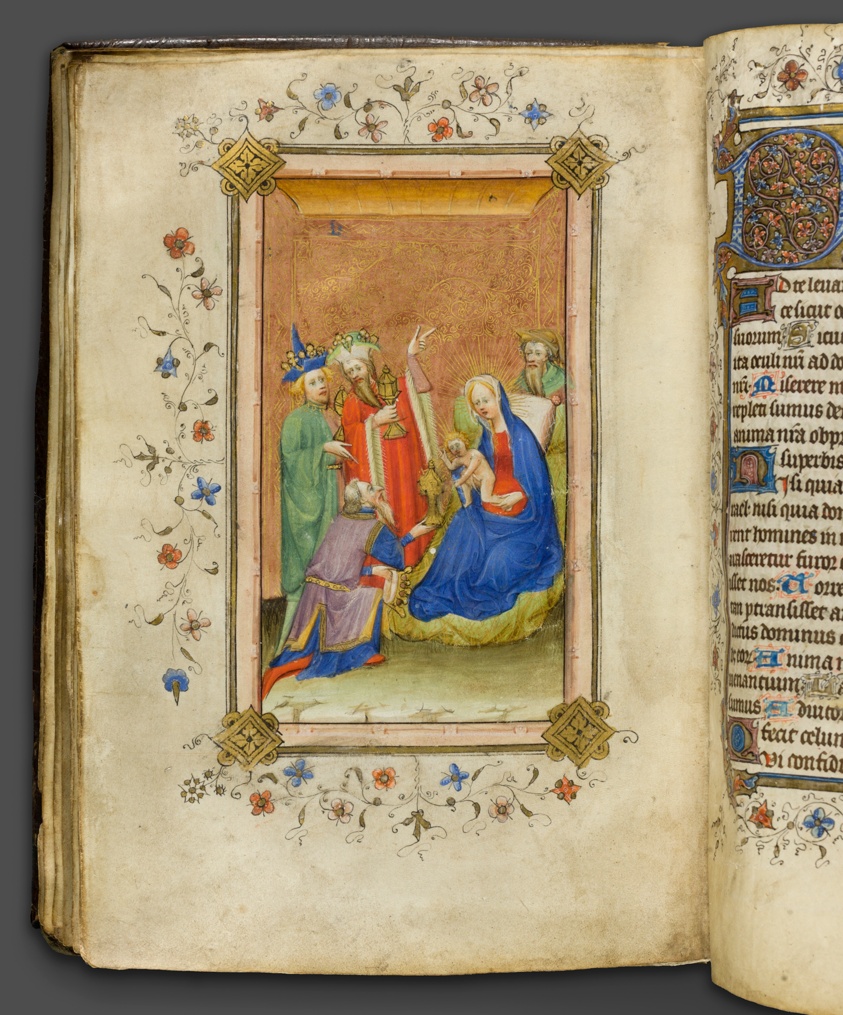 Ad te leua
ce sicut o
suorum Sicu
ita oculi nr̃i ad do
nr̃i Miserere n
repleti sumus de
anima nr̃a obpr
superbis
Nisi quia
rael nisi quia dom
rent homines in
irasceretur furor e
isset nos Torre
ptransisset a
dictus dominus
Anima n
uenantium La
sumus Adiutor
fecit celum
Qui confid